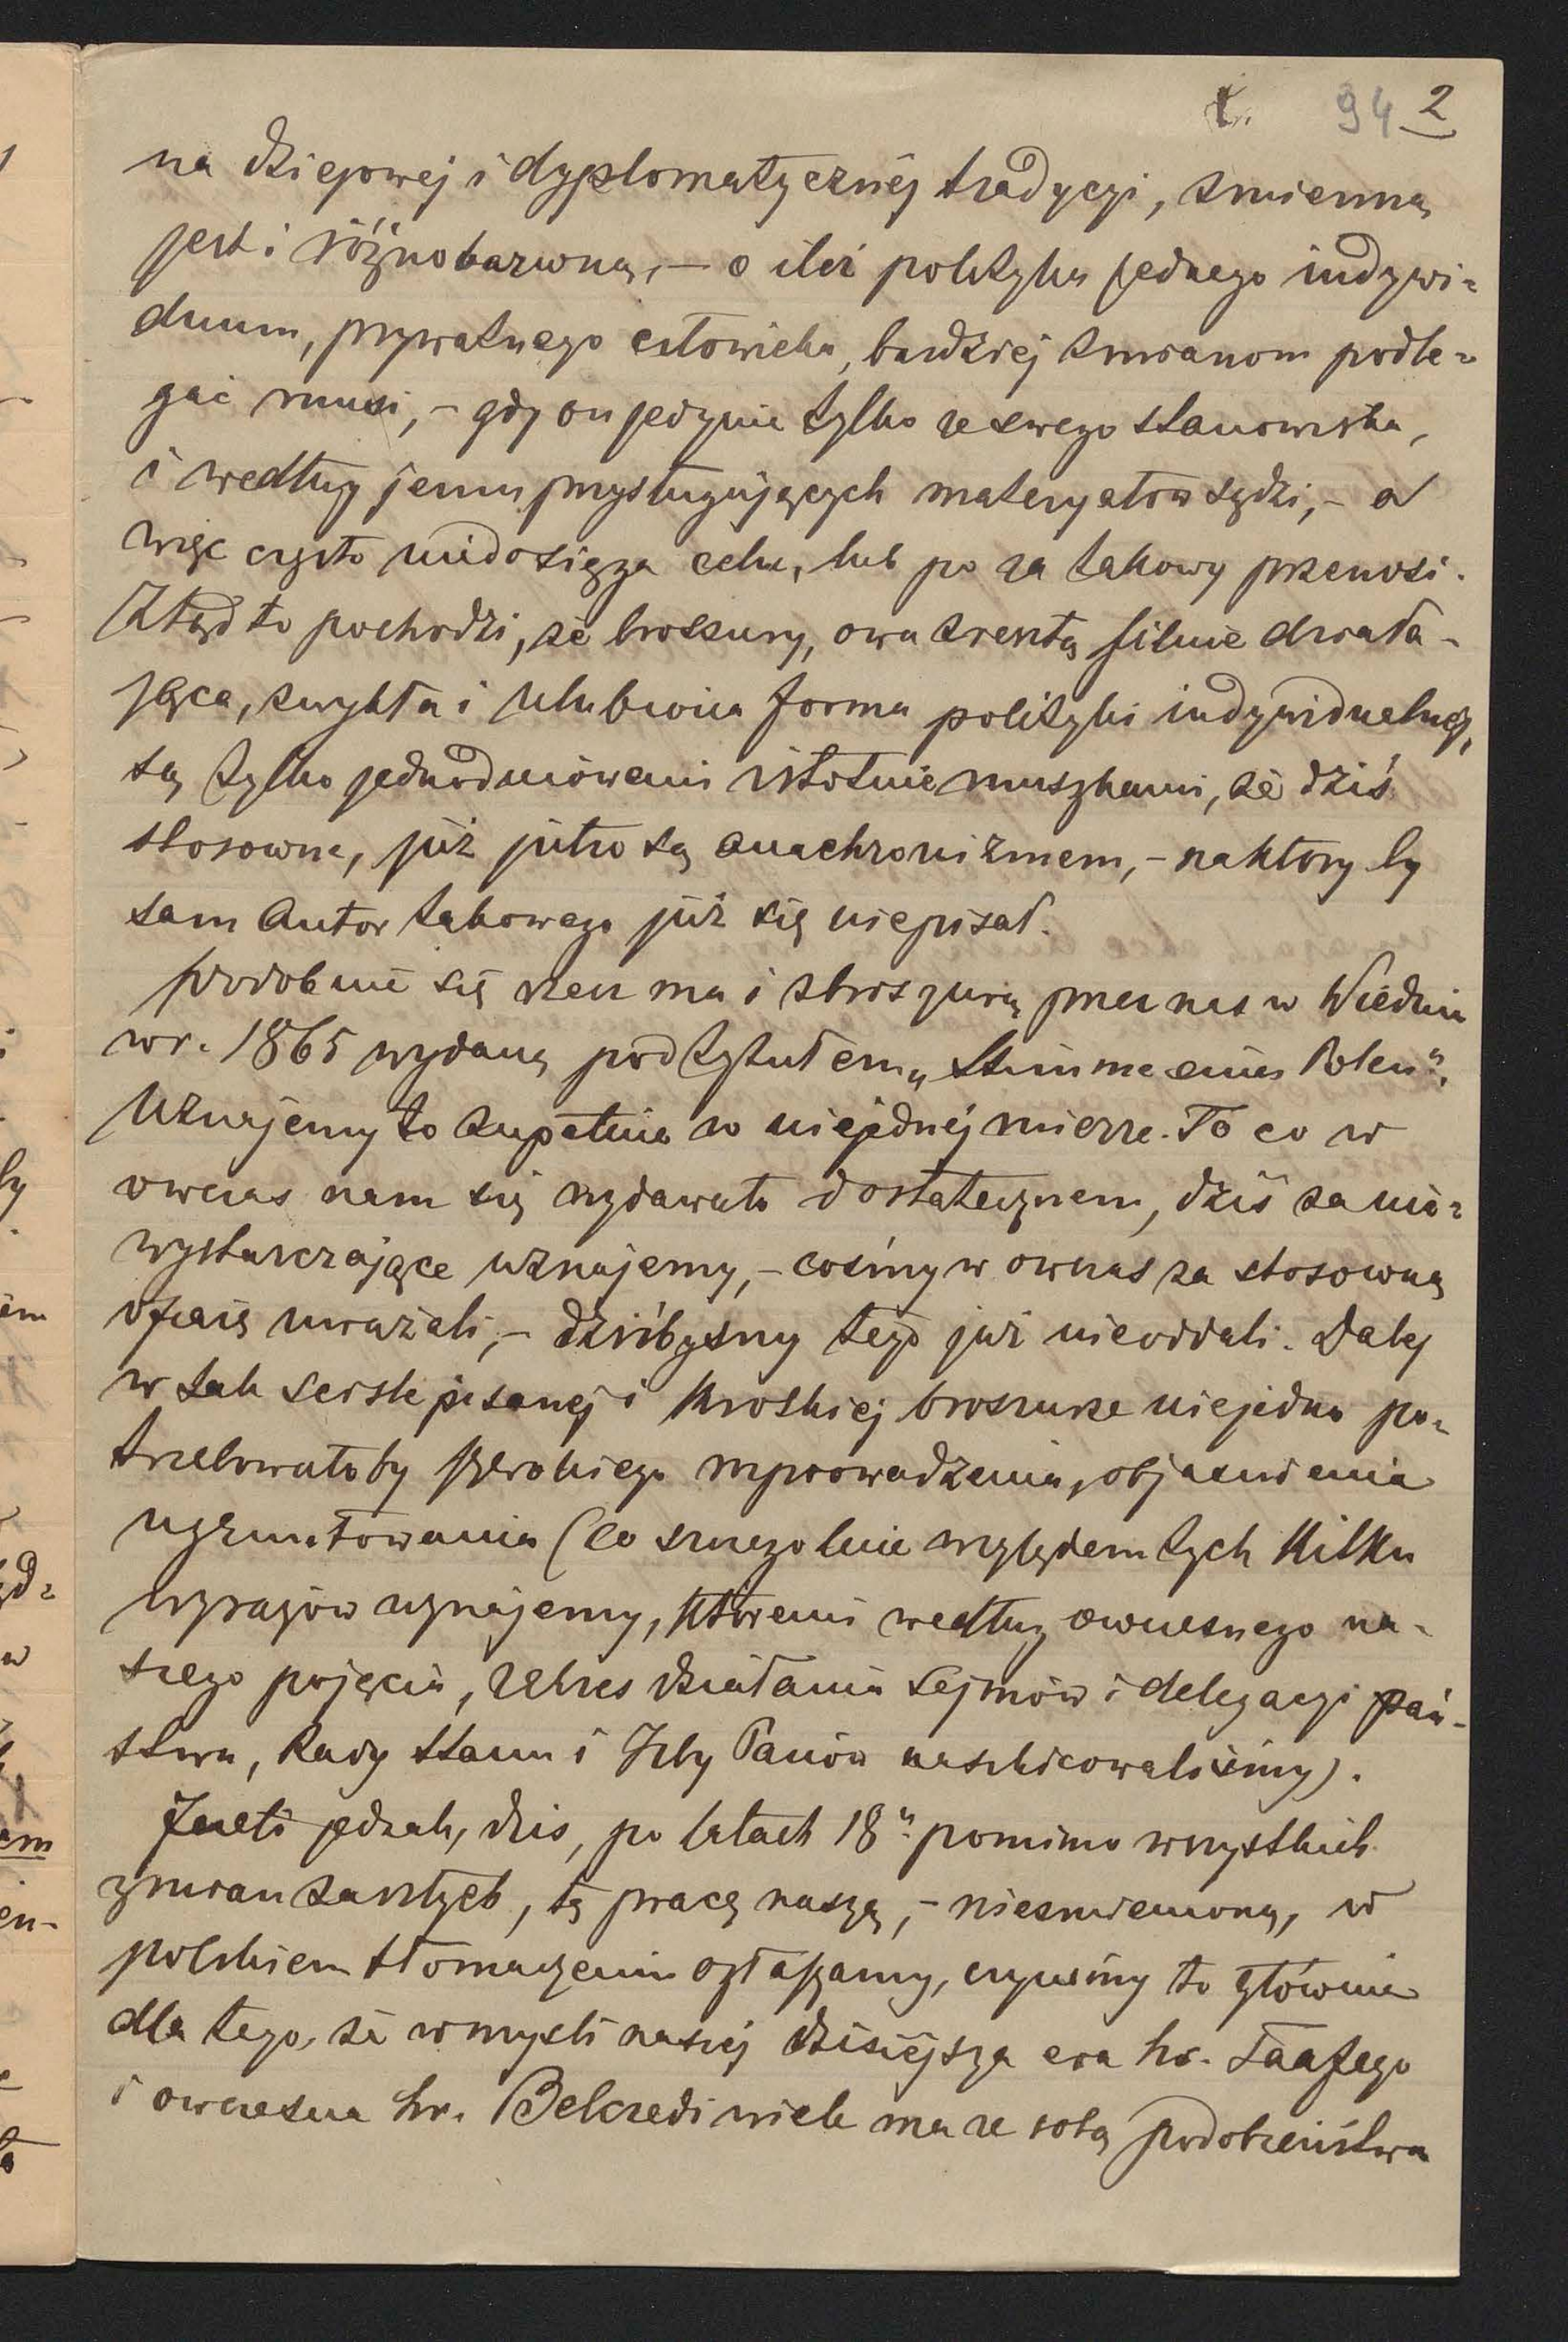 94 2
na dziejowej i dyplomatycznéj tradycyi, zmienną
jest i różnobarwną, – o ileż polityka jednego indywi=
duum, prywatnego człowieka, bardziej zmianom podle=
gać musi, – gdy on jedynie tylko ze swego stanowiska,
i według jemu przysługujących materyałów sądzi, – a
więc często niedosięga celu, lub po za takowy przenosi.
Ztąd to pochodzi, że broszury, owa zresztą silnie działa-
jąca, zwykła i ulubiona forma polityki indywidualnej,
są tylko jednodniówemi istotnie muszkami, że dziś
stosowne, już jutro są anachronizmem, – na który by
sam Autor takowego już się niepisał.
Podobnie się rzecz ma i z broszurą przez nas w Wiedniu
w r. 1865 wydaną pod tytułem „Stimme eines Polen".
Uznajemy to zupełnie w niejednéj mierze. To co w
owczas nam się wydawało dostatecznem, dziś za nie=
wystarczające uznajemy, – cośmy w owczas za stosowną
ofiarę uważali, – dziśbyśmy tego już nieoddali. Daléj
w tak ściśle pisanej i krótkiej broszurze niejedno po=
trzebowałoby szerokiego wprowadzenia, objaśnienia
ugruntowania (co szczególnie względem tych kilku
wyrazów uznajemy, któremi według owczesnego na=
szego pojęcia, zakres działania Sejmów i delegacyi pań-
stwa, Rady stanu i Izby Panów naszkicowaliśmy).
Jeżeli jednak, dziś, po latach 18" pomimo wszystkich
zmian zaszłych, tę pracę naszą, – niezmienioną, w
polskiem tłomaczeniu ogłaszamy, czynimy to głównie
dla tego, że w myśli naszéj dzisiéjsza era hr. Taafego
i owczesna hr. Belcredi wiele ma ze sobą podobieństwa